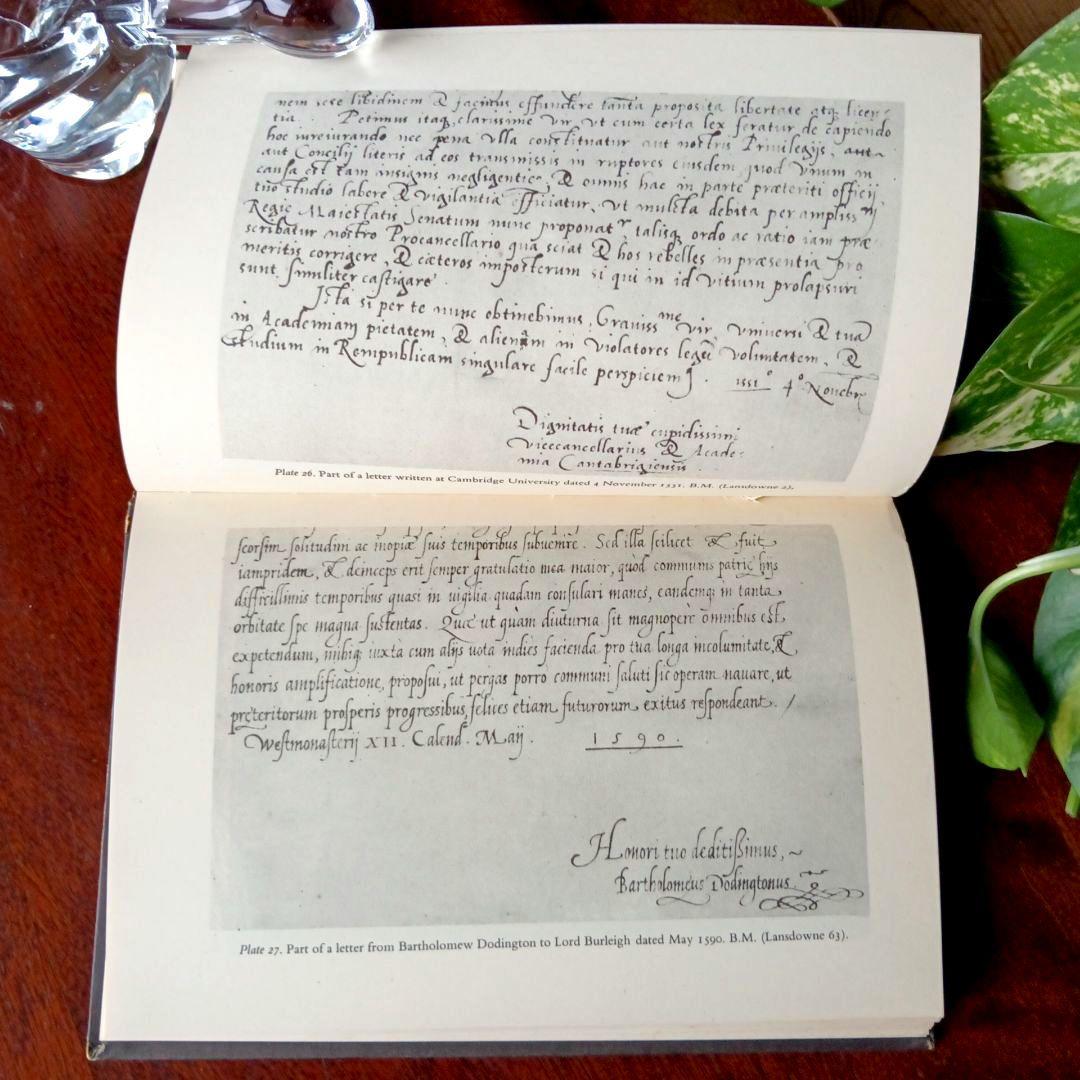 nem sese libidinem & facinus effundere tanta proposita libertate atq licen-
tia. Petimus itaq clarissime vir, vt cum certa lex feratur de capiendo
hoc iureiurando nec pena vlla constituatur aut nostris Privilegijs, aut
aut Concilij literis ad eos transmissis in ruptores eiusdem, quod vnum in
causa est tam insignis negligentie, & omnis hac in parte præteriti officij,
tuo studio labore & vigilantia efficiatur, vt mulcta debita per ampliss
Regie Maiestatis Senatum nunc proponatr talisq ordo ac ratio iam præ-
scribatur nostro Procancellario qua sciat & hos rebelles in præsentia pro
meritis corrigere, & cæteros imposterum si qui in id vitium prolapsuri
sunt, similiter castigare.
Ista si per te nunc obtinebimus, Graviss me vir, vniversi & tuā
in Academiam pietatem, & alienam in violatores legū voluntatem, &
studium in Rempublicam singulare facile perspiciem
1551o 4o Novebr
Dignitatis tuæ cupidissimi
vicecancellarius & Acade-
mia Cantabrigiensis.
Plate 26. Part of a letter written at Cambridge University dated 4 November 1551. B.M. (Lansdowne 2).
seorsim solitudini ac inopiæ suis temporibus subuenire. Sed illa scilicet & fuit
iampridem, & deinceps erit semper gratulatio mea maior, quòd communis patrię hijs
difficillimis temporibus quasi in uigilia quadam consulari manes, eandemq in tanta
orbitate spe magna sustentas. Quæ ut quàm diuturna sit magnoperè omnibus est
expetendum, mihiq iuxtà cum alijs uota indies facienda pro tua longa incolumitate, &
honoris amplificatione, proposui, ut pergas porrò communi saluti sic operam nauare, ut
pręteritorum prosperis progressibus, felices etiam futurorum exitus respondeant. /
Westmonasterij XII. Calend. Maij. 1590.
Honori tuo deditißimus, ~
Bartholomęus Dodingtonus
Plate 27. Part of a letter from Bartholomew Dodington to Lord Burleigh dated May 1590. B.M. (Lansdowne 63).